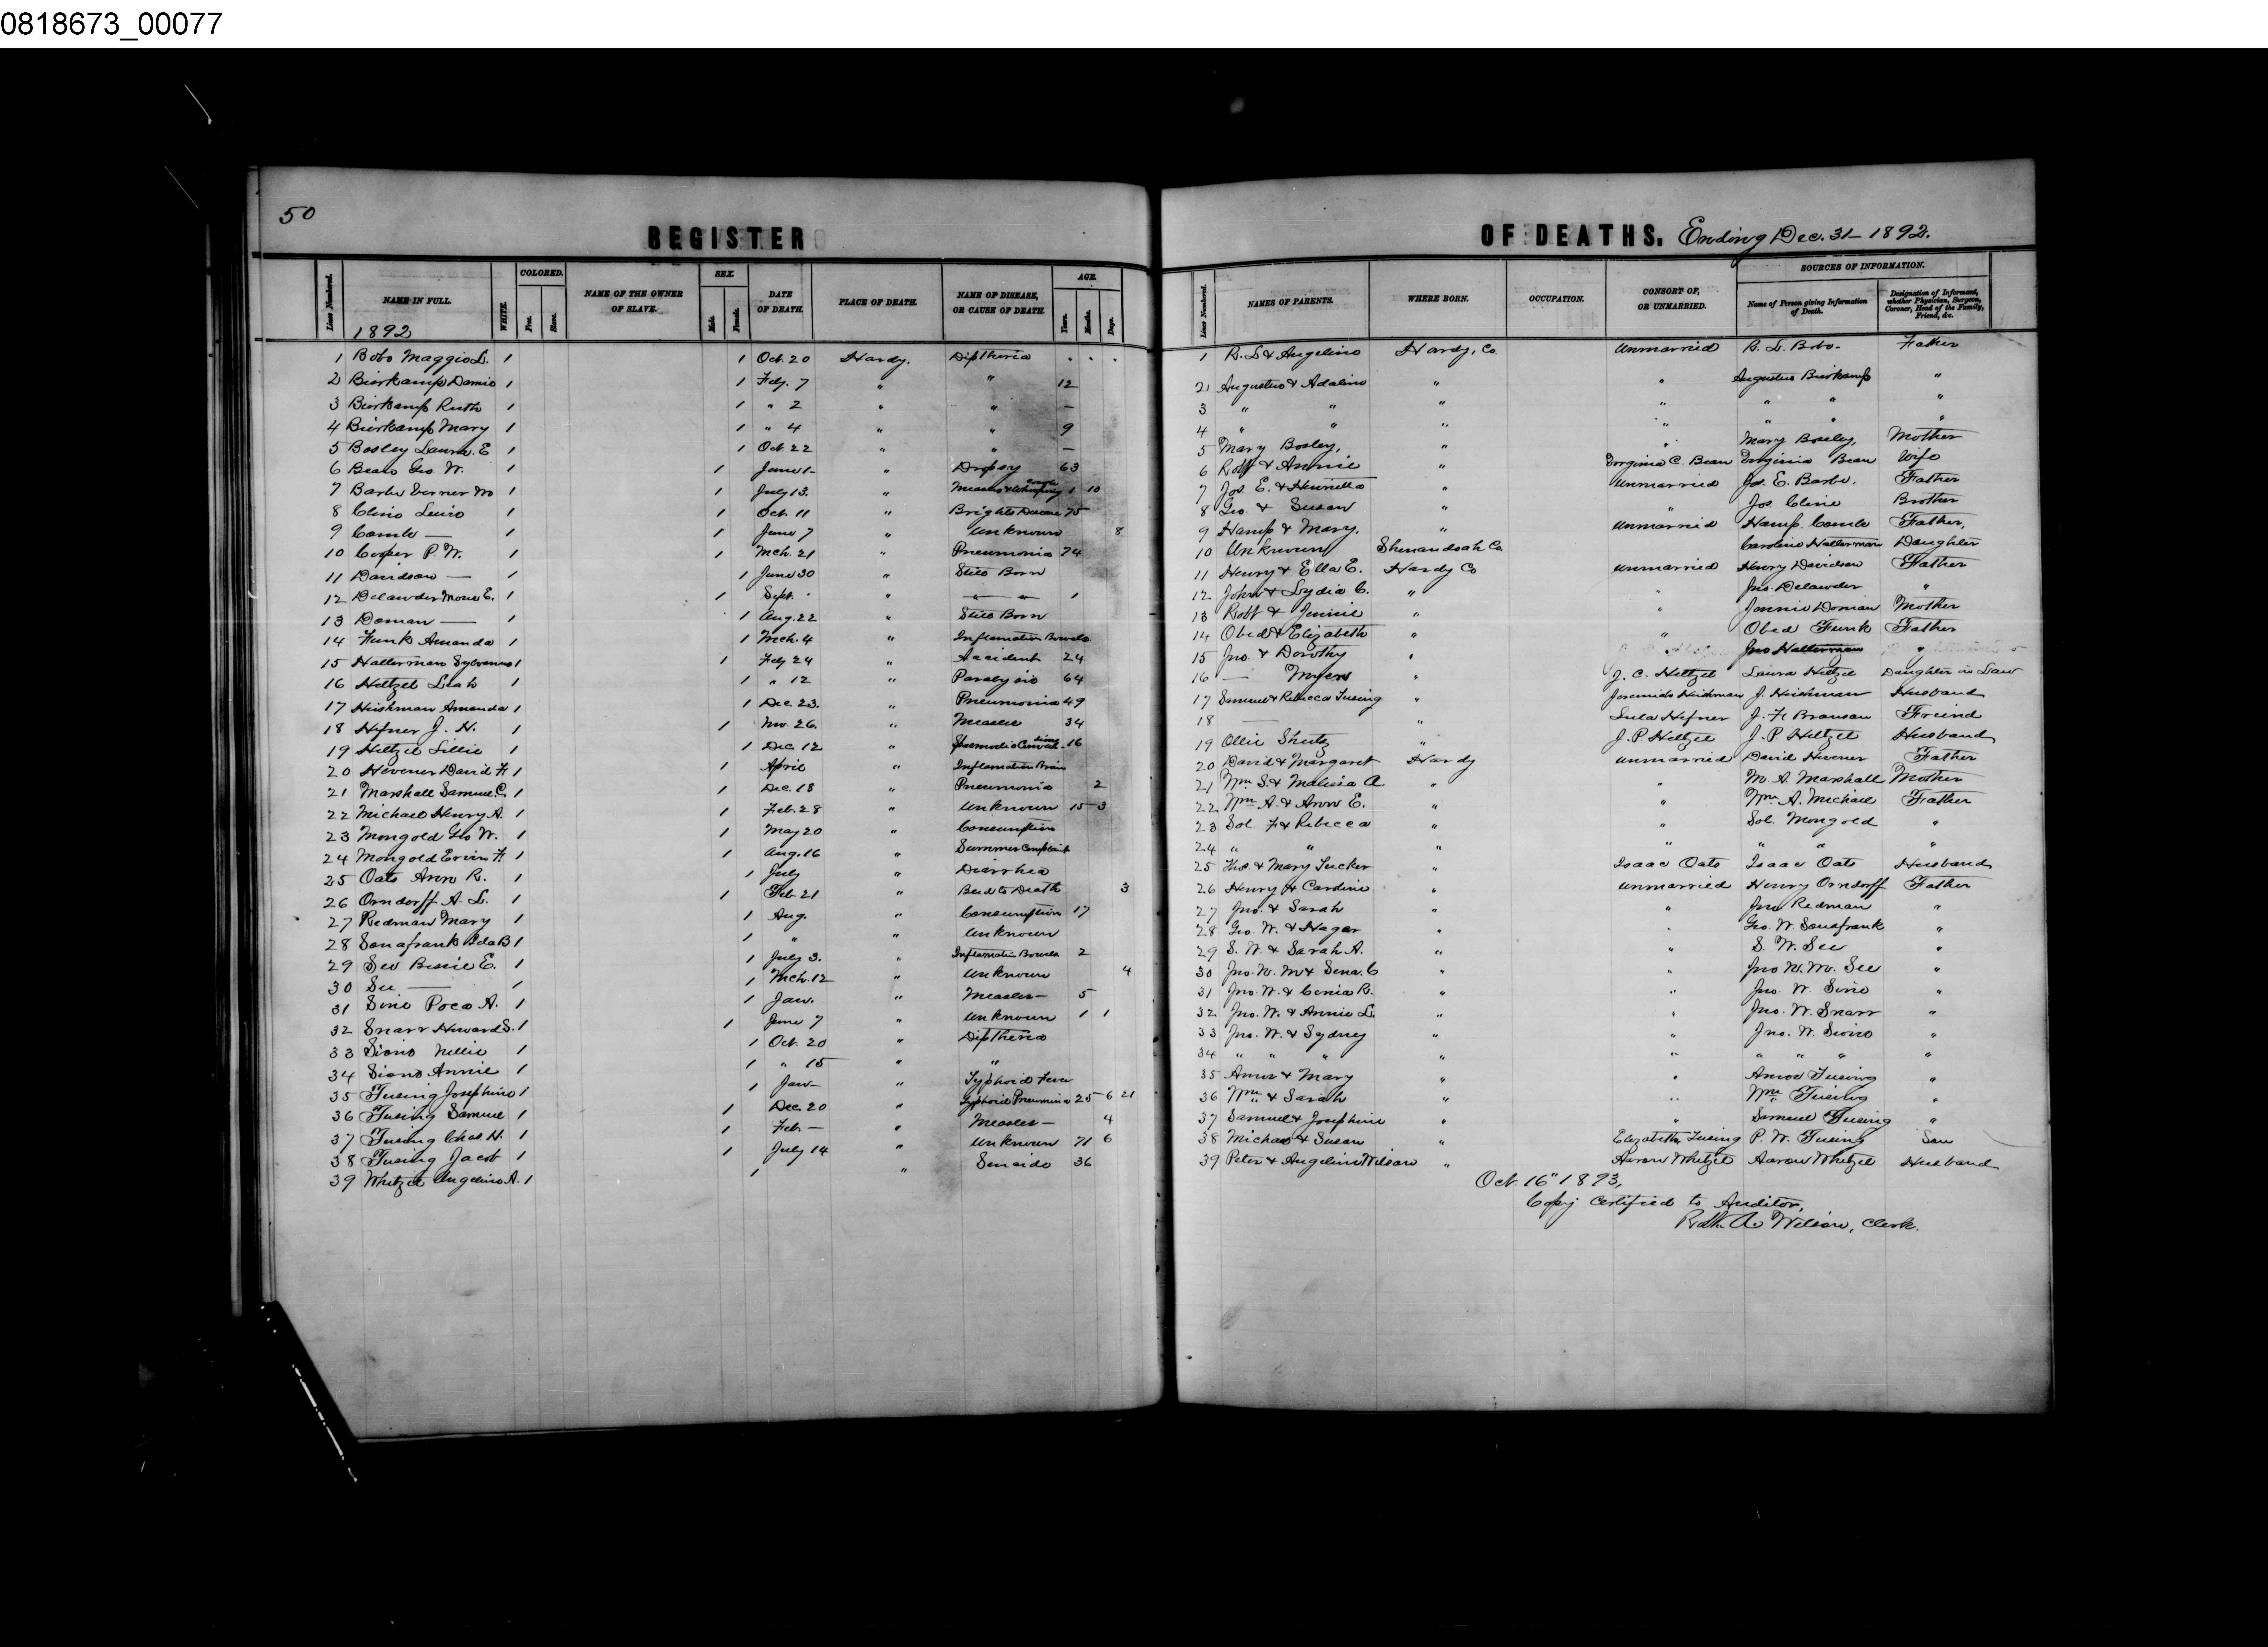 0818673_00077
50
REGISTER OF DEATHS. Ending Dec. 31- 1892.
Lines Numbered. NAME IN FULL. WHITE. COLORED. Free. Slave. NAME OF THE OWNER OF SLAVE. SEX. Male. Female. DATE OF DEATH. PLACE OF DEATH. NAME OF DISEASE, OR CAUSE OF DEATH. AGE. Years. Months. Days.
Lines Numbered. NAMES OF PARENTS. WHERE BORN. OCCUPATION. CONSORT OF, OR UNMARRIED. SOURCES OF INFORMATION. Name of Person giving Information of Death. Designation of Informant, whether Physician, Surgeon, Coroner, Head of the Family, Friend, &c.
1892
1 Bobo Maggie L. 1 1 Oct. 20 Hardy. Diptheria . . . 1 R. L & Angeline Hardy, Co. Unmarried R. L. Bobo. Father
2 Bierkamp 1 1 Feb. 7 " " 12 2 Augustus & Adaline " " Augustus Bierkamp "
3 Bierkamp Ruth 1 1 " 2 " " — 3 " " " " " " "
4 Bierkamp Mary 1 1 " 4 " " 9 4 " " " " " " "
5 Bosley Laura E 1 1 Oct. 22 " " — 5 Mary Bosley, " " Mary Bosley, Mother
6 Bean Geo W. 1 1 June 1- " Dropsy 63 6 Robt & Annie " Virginia C. Bean Virginia Bean Wife
7 Barbe Verner M 1 1 July 13. " Measles & Whooping Cough 1 10 7 Jos. E. & Henrietta " Unmarried Jos. E. Barbe. Father
8 Cline Levi 1 1 Oct. 11 " Brights Disease 75 8 Geo. & Susan " " Jos Cline Brother
9 Comb — 1 1 June 7 " Unknown 8 9 Hamp & Mary. " Unmarried Hamp. Comb Father,
10 Cosper P. W. 1 1 Mch. 21 " Pneumonia 74 10 Unknown Shenandoah Co. Caroline Halterman Daughter
11 Davidson — 1 1 June 30 " Still Born 11 Henry & Ella E. Hardy Co Unmarried Henry Davidson Father
12 Delawder E. 1 1 Sept. " — " — 1 12 John & Lydia C. " " Jno. Delawder "
13 Doman — 1 1 Aug. 22 " Still Born 13 Robt & Jennie " " Jennie Doman Mother
14 Funk Amanda 1 1 Mch. 4 " Inflamation Bowels 14 Obed & Elizabeth " " Obed Funk Father
15 Halterman Sylvanus 1 1 Feb 24 " Accident 24 15 Jno. & Dorothy " " Jno Halterman "
16 Heltzel Leah 1 1 " 12 " Paralysis 64 16 — Myers " J. C. Heltzel Laura Heltzel Daughter in Law
17 Hishman Amanda 1 1 Dec. 23. " Pneumonia 49 17 Samuel & Rebecca Fusing " Jeremiah Hishman J. Hishman Husband
18 Hefner J. H. 1 1 Nov. 26. " Measles 34 18 — " Lula Hefner J. F. Branson Freind
19 Heltzel Lillie 1 1 Dec. 12 " Spasmodic Convulsions 16 19 Ollie Shutz " J. P Heltzel J. P Heltzel Husband
20 Hevener David F. 1 1 April " Inflamation Brain 20 David & Margaret Hardy Unmarried David Hevener Father
21 Marshall Samuel C. 1 1 Dec. 18 " Pneumonia 2 21 Wm. S. & Malissa A. " " M. A. Marshall Mother
22 Michael Henry A. 1 1 Feb. 28 " Unknown 15 3 22 Wm A. & Ann E. " " Wm A. Michael Father
23 Mongold Geo W. 1 1 May 20 " Consumption 23 Sol. F & Rebecca " " Sol. Mongold "
24 Mongold Ervin F. 1 1 Aug. 16 " Summer Complaint 24 " " " " " " " "
25 Oats Ann R. 1 1 July " Diarrhea 25 Thos & Mary Tucker " Isaac Oats Isaac Oats Husband
26 Orndorff A. L. 1 1 Feb. 21 " Bled to Death 3 26 Henry & Caroline " Unmarried Henry Orndorff Father
27 Redman Mary 1 1 Aug. " Consumption 17 27 Jno. & Sarah " " Jno Redman "
28 Sonafrank Ida B 1 1 " " Unknown 28 Geo. W. & Hagar " " Geo. W. Sonafrank "
29 See Bessie E. 1 1 July 3. " Inflamation Bowels 2 29 S. W. & Sarah A. " " S. W. See "
30 See — 1 1 Mch. 12 " Unknown 4 30 Jno. W. M & Sena. C " " Jno W. M. See "
31 Sine Poca A. 1 1 Jan. " Measles — 5 31 Jno. W. & Cenia R. " " Jno. W. Sine "
32 Snarr Howard S. 1 1 June 7 " Unknown 1 1 32 Jno. W. & Annie L. " " Jno. W. Snarr "
33 Nellie 1 1 Oct. 20 " Diptheria 33 Jno. W. & Sydney " " Jno. W. "
34 Annie 1 1 " 15 " " 34 " " " " " " " " "
35 Fusing Josephine 1 1 Jan- " Typhoid Fever 35 Amos & Mary " " Amos Fusing "
36 Fusing Samuel 1 1 Dec. 20 " Typhoid Pneumonia 25 6 21 36 Wm & Sarah " " Wm Fusing "
37 Fusing Chas H. 1 1 Feb — " Measles — 4 37 Samuel & Josephine " " Samuel Fusing "
38 Fusing Jacob 1 1 July 14 " Unknown 71 6 38 Michael & Susan " Elizabeth Fusing P. W. Fusing Son
39 Whitzel Angeline A. 1 1 " Sucide 36 39 Peter & Angeline Wilson " Aaron Whitzel Aaron Whitzel Husband
Oct. 16" 1893,
Copy certified to Auditor,
Robt. A Wilson, Clerk.